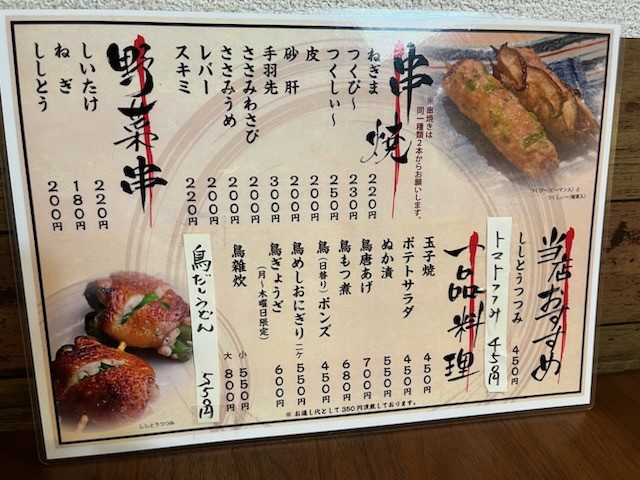 串焼
※串焼きは
同一種類2本からお願いします。
ねぎま 220円
つくぴ〜 230円
つくしぃ〜 250円
皮 200円
砂肝 200円
手羽先 300円
ささみわさび 200円
ささみうめ 200円
レバー 200円
スキミ 220円
野菜串
しいたけ 220円
ねぎ 180円
ししとう 200円
つくぴー(ピーマン入)と
つくしぃー(椎茸入)
当店おすすめ
ししとうつつみ 450円
トマトつつみ 450円
一品料理
玉子焼 450円
ポテトサラダ 450円
ぬか漬 550円
鳥唐あげ 700円
鳥もつ煮 680円
鳥(日替り)ポンズ 450円
鳥めしおにぎり二ケ 550円
鳥ぎょうざ 600円
(月〜木曜日限定)
鳥雑炊 小 550円
大 800円
鳥だしうどん 550円
ししとうつつみ
※お通し代として350円頂戴しております。